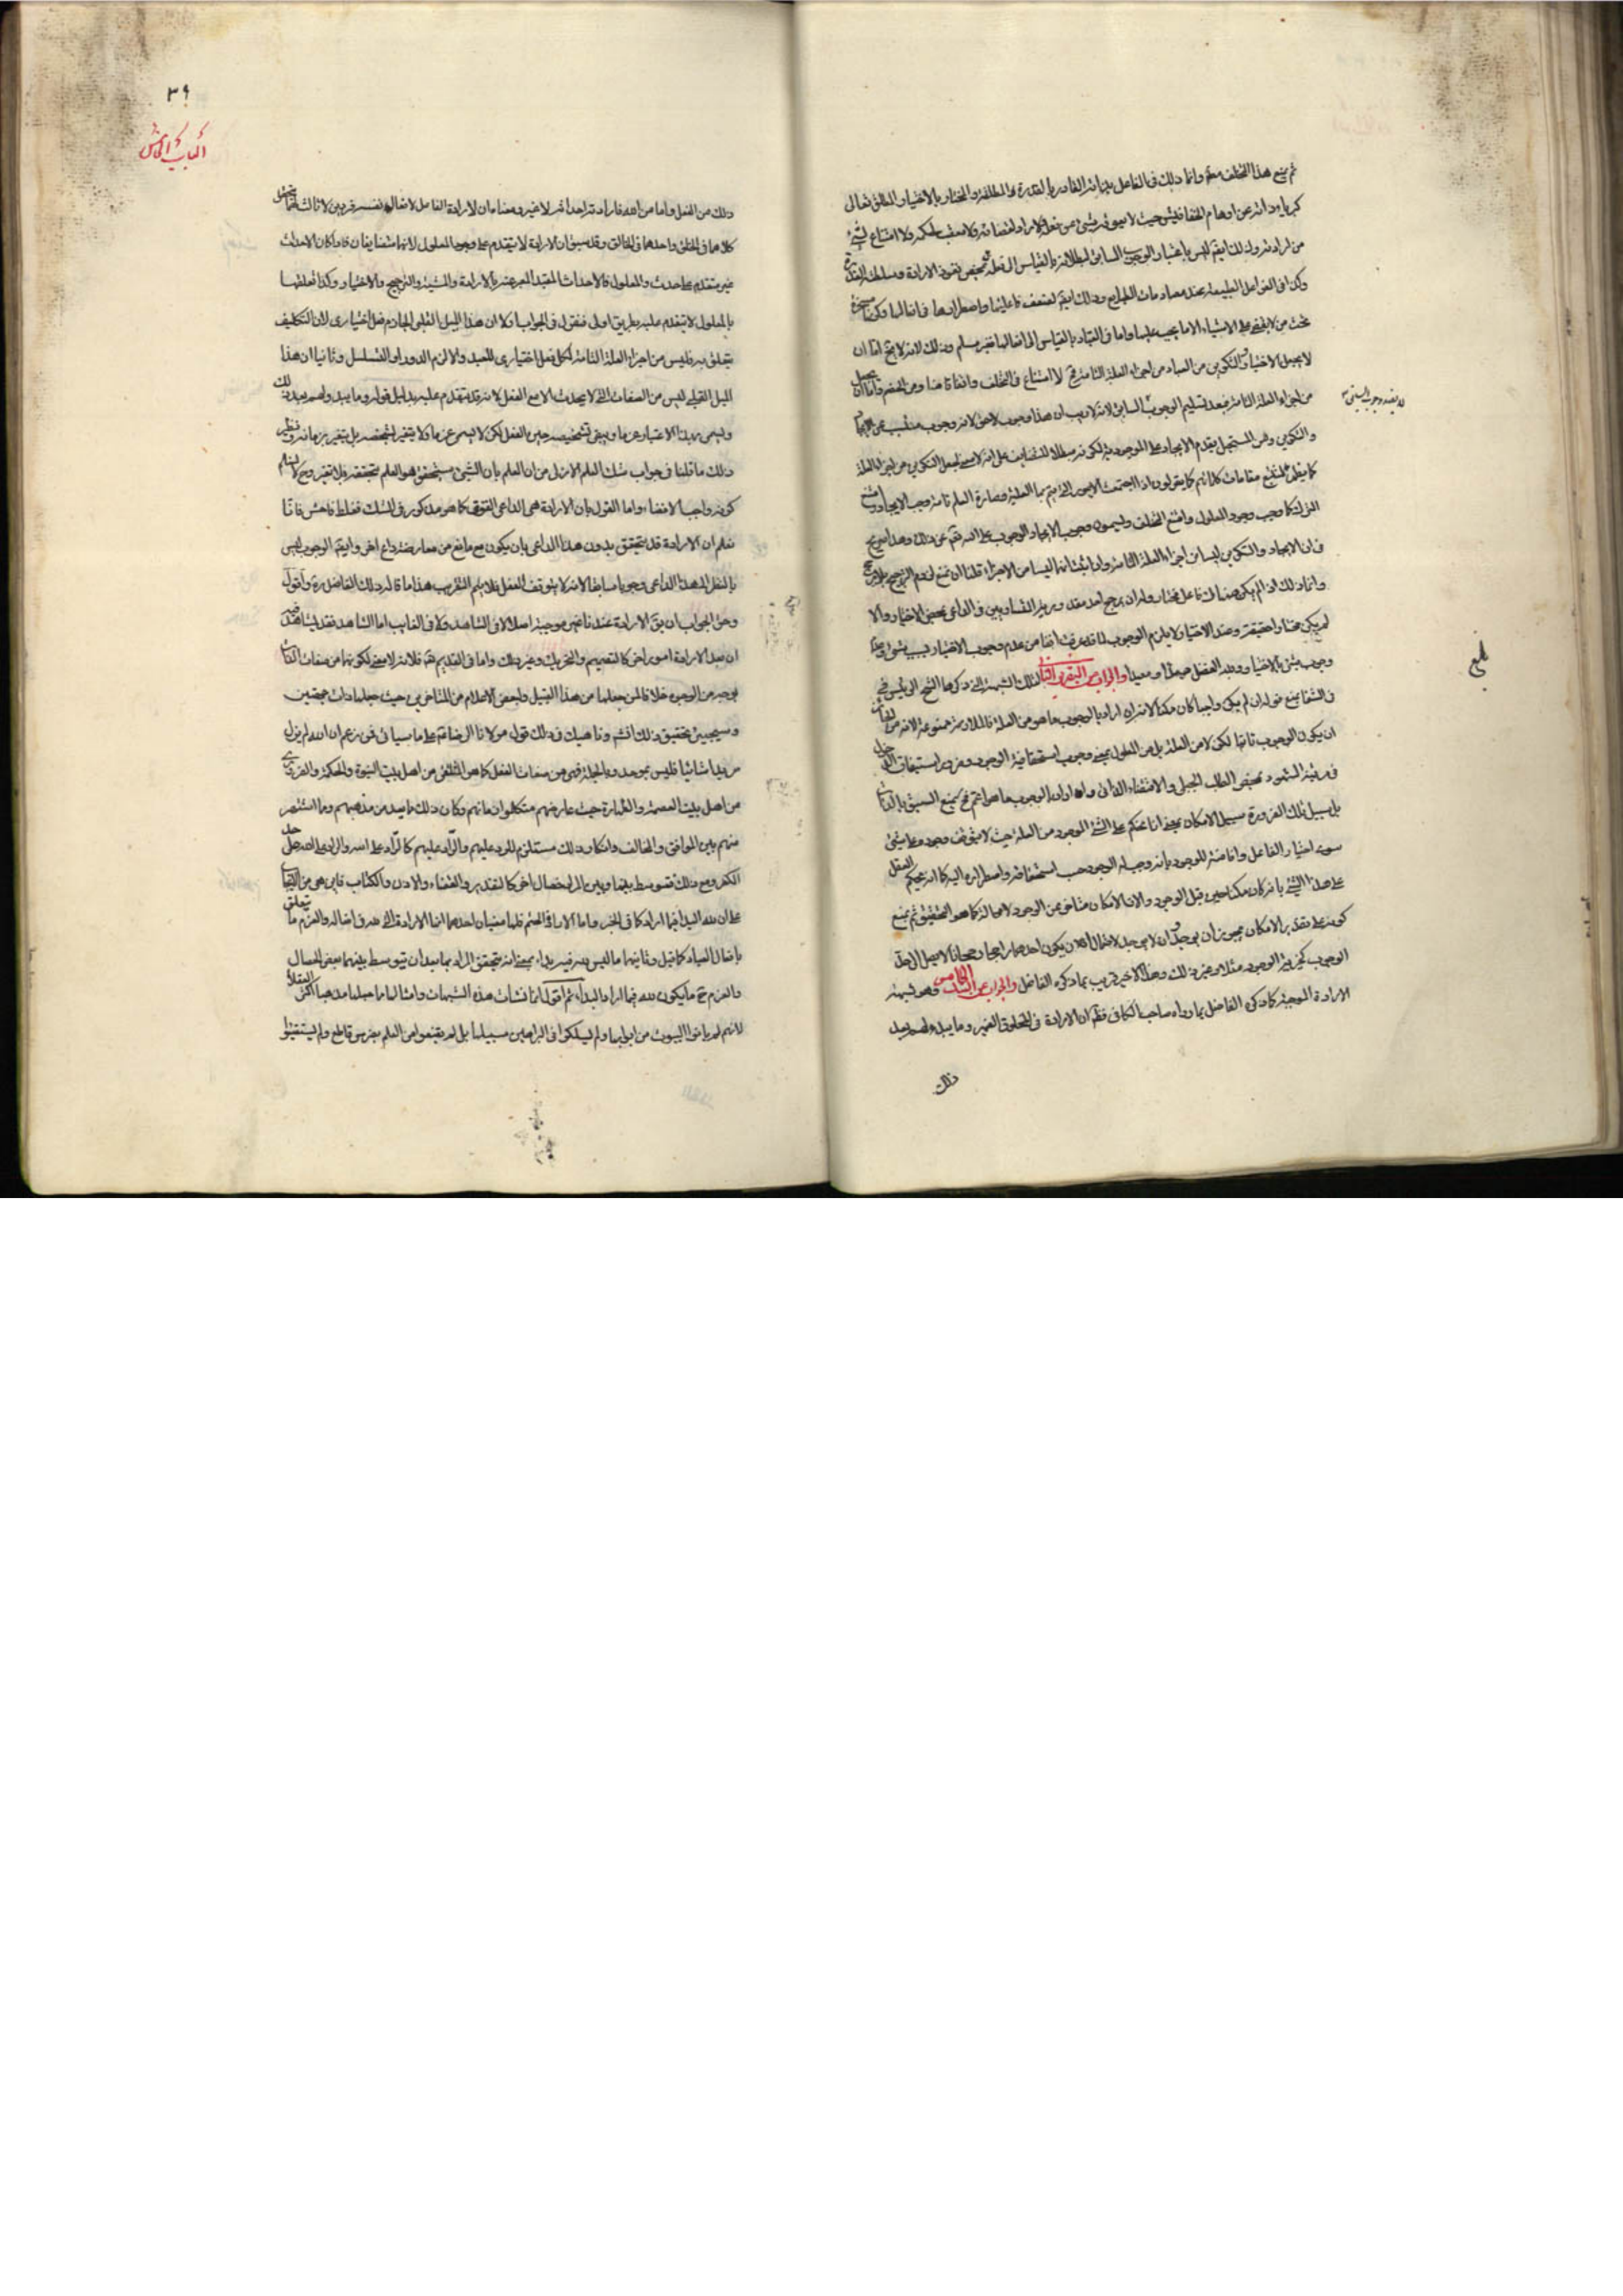 ثم نمنع هذا التخلف معه وانما ذلك في الفاعل بجنانه القادر بالقدرة المطلقة والمختار بالاختيار المطلق تعالى
كبرياؤه ذاته عن اوهام الخلق فليس حيث لا يعوقه شيء عن فعل ولا راد لقضائه ولا معقب لحكمه ولا امتناع لشيء
من مراداته وذلك ايضا ليس باعتبار الوجوب السابق لبطلانه بالقياس الى فعله بمحض نفوذ الارادة وسلطنة القدرة
وكذا في الفواعل الطبيعية عند مصادمات الطبايع وذلك ايضا لضعف فاعليتها واضطرارها في افعالها
تحت من لا يقضي على الاشياء الا ما يجب عليها واما في العباد بالقياس الى افعالها فغير مسلم وذلك لانه لا يخ اما ان
لا يجعل الاختيار والتكوين من العباد من اجزاء العلة التامة فح لا امتناع في التخلف واما ان يجعل
من اجزاء العلة التامة فبعد تسليم الوجوب السابق لا ريب ان هذا وجوب لاحق لانه وجوب منبعث عن الايجاد
والتكوين ومن المستحيل تقدم الايجاد على الموجودية لكونه مبطلا للتضايف على انه لا معنى لجعل التكوين من اجزاء العلة
كما يظهر لمتتبع مقامات كلامهم كما يقولون اذا اجتمعت الامور التي يتم بها العلية وصارت العلة تامة وجب الايجاد وامتنع
الترك كما وجب وجود المعلول وامتنع التخلف ويسمون وجوب الايجاد الوجوب على الله تعالى عن ذلك وهذا صريح
في ان الايجاد والتكوين ليسا من اجزاء العلة التامة واذا ثبت انهما ليسا من الاجزاء قلنا ان نمنع لزوم الترجيح بلا مرجح
وانما ذلك اذا لم يكن هناك فاعل مختار وله ان يرجح احد مقدوريه المتساويين في الداعي بمحض الاختيار والا
لم يكن مختارا حقيقة وعند الاختيار لا يلزم الوجوب لما قد عرفت انفا من عدم وجوب الاختيار
وجوب ينشئ بالاختيار ولله الفضل مبدءا ومعيدا والجواب عن التقرير الثالث لتلك الشبهة التي ذكرها الشيخ الرئيس
في الشفا بمنع قوله ان لم يكن واجبا كان ممكنا لانه ان اراد بالوجوب ما هو من العلة فالملازمة ممنوعة لانه من الجائز
ان يكون الوجوب ثابتا لكن لا من العلة بل من المعلول بمعنى وجوب استحقاقية الوجود
في مرتبة الشهود بمحض الطلب الجبلي والاقتضاء الذاتي وان اراد بالوجوب ما هو اعم فح يمنع السبق بالذات
بل سبيل تلك الضرورة سبيل الامكان بمعنى انا نحكم على الشيء الموجود من العلة حيث لا يتوقف وجوده على شيء
سوى اختيار الفاعل وافاضته للوجود بانه وجب له الوجود حسب استحقاقه واضطراره اليه كما انه يحكم العقل
على هذا الشيء بانه كان ممكنا حين قبل الوجود والان الامكان متاخر عن الوجود لا محالة كما هو التحقيق ثم نمنع
كونه على تقدير الامكان يجوز ان يوجد وان لا يوجد لاحتمال ان يكون احدهما راجحا رجحانا لا يصل الى حد
الوجوب كخيرية الوجود مثلا وغير ذلك وهذا الاخير قريب مما ذكره الفاضل والجواب عن الشك الخامس وهو شبهة
الارادة الموجبة كما ذكره الفاضل بما رواه صاحب الكافي فظهر ان الارادة في المخلوق الضمير وما يبدو لهم بعد
ذلك
بلغ
٣٩
الباب الخامس
ذلك من الفعل واما من الله فارادته احداثه لا غير ومعناه ان لارادة الفاعل لافعال نفسه فردين لا ثالث لهما
كلاهما في الخلق واحدهما في الخالق وقد سبق ان الارادة لا يتقدم على وجود المعلول لانهما متضايفان فاذا كان الاحداث
غير متقدم على حدث والمعلول فالاحداث المقيد المعبر عنه بالارادة والمشية والترجيح والاختيار وكذا تعلقها
بالمعلول لا يتقدم عليه بطريق اولى فنقول في الجواب اولا ان هذا الميل القلبي الجازم فعل اختياري لان التكليف
يتعلق به فليس من اجزاء العلة التامة لكل فعل اختياري للعبد والا لزم الدور او التسلسل وثانيا ان هذا
الميل القلبي ليس من الصفات التي لا يحدث الا مع الفعل لانه قد يتقدم عليه بدليل قوله وما يبدو لهم بعد ذلك
ويسمى بهذا الاعتبار عزما ويبقى تشخيصه حين الفعل لكن لا يسمى عزما ولا يتغير تشخصه بل يتغير زمانه ونظير
ذلك ما قلنا في جواب شك العلم الازلي من ان العلم بان الشيء سيتحقق هو العلم بتحققه فلا تغير وح لا نعلم
كونه واجب الاقتضاء واما القول بان الارادة هي الداعي القوي كما هو مذكور في الشك فغلط فاحش فانا
نعلم ان الارادة قد يتحقق بدون هذا الداعي بان يكون مع مانع من معارضة داع اخر وايضا الوجوب ليس
بالنظر الى هذا الداعي وجوبا سابقا لانه لا يتوقف الفعل فلا يتم التقريب هذا ما قاله ذلك الفاضل ره واقول
وحق الجواب ان يق الارادة عندنا غير موجبة اصلا لا في الشاهد ولا في الغايب اما الشاهد فقد
ان بعد الارادة امور اخر كالتصميم والتحريك وغير ذلك واما في القديم تعالى فلانه لا معنى لكونها من صفات الذات
بوجه من الوجوه خلافا لمن جعلها من هذا القبيل ولبعض الاعلام من المتاخرين حيث جعلها ذات جهتين
وسيجيء تحقيق ذلك انشم وناهيك في ذلك قول مولانا الرضا عه على ما سياتي فمن زعم ان الله لم يزل
مريدا شائيا فليس بموحد وبالجملة فهي من صفات الفعل كما هو المتلقى من اهل بيت النبوة والحكمة
من اهل بيت العصمة والطهارة حيث عارضهم متكلموا زمانهم وكان ذلك ما يعد من مذهبهم وما اشتهر
منهم بين الموافق والمخالف وانكار ذلك مستلزم للرد عليهم والراد عليهم كالراد على الله والراد على الله على حد
الكفر ومع ذلك فتوسط بينها وبين المراد خصال اخر كالتقدير والقضاء والاذن والكتاب
على ان لله البدا فيما اراد كما في الخبر واما الارادة الحتم فلها معنيان احدهما انها الارادة التي لله في افعاله والعزم ما يتعلق
بافعال العباد كما قيل وثانيهما ما ليس لله فيه بداء بمعنى انه يتحقق المراد بها بعد ان يتوسط بينهما بعض الخصال
والعزم ح ما يكون لله فيما اراد البداء ثم اقول انما نشات هذه الشبهات وامثالها ما جعلها مذهبا اكثر العقلاء
لانهم لم ياتوا البيوت من ابوابها ولم يسلكوا في البراهين سبيلها بل لم يقنعوا من العلم بضرس قاطع ولم يستقيوا